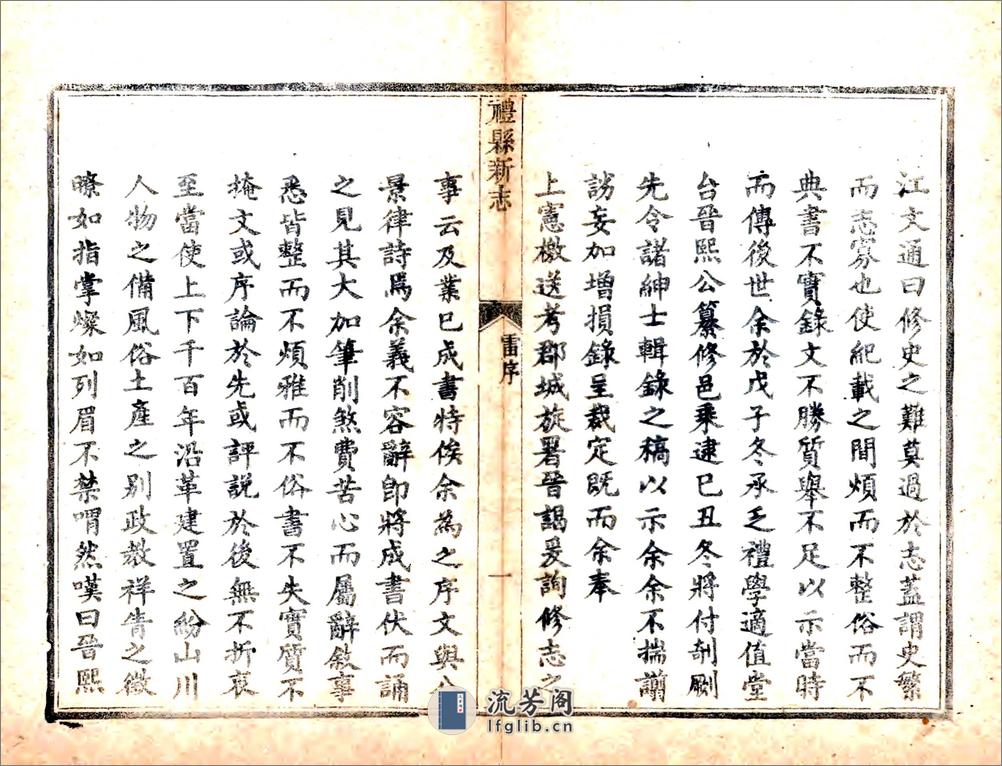 江文通曰修史之難莫過於志蓋謂史繁
而志寡也使紀載之間煩而不整俗而不
典書不實錄文不勝質舉不足以示當時
而傳後世余於戊子冬承乏禮學適值堂
台晉熙公纂修邑乘逮巳丑冬將付剞劂
先令諸紳士輯錄之稿以示余余不揣譾
謭妄加增損錄呈裁定既而余奉
上憲檄送考郡城旋署晉謁爰詢修志之
禮縣新志
雷序
一
事云及業巳成書特俟余為之序文與八
景律詩爲余義不容辭卽將成書伏而誦
之見其大加筆削煞費苦心而屬辭敘事
悉皆整而不煩雅而不俗書不失實質不
掩文或序論於先或評說於後無不折衷
至當使上下千百年沿革建置之紛山川
人物之備風俗土產之別政教祥眚之徵
瞭如指掌燦如列眉不禁喟然嘆曰晉熙
流芳阁
lfglib.cn